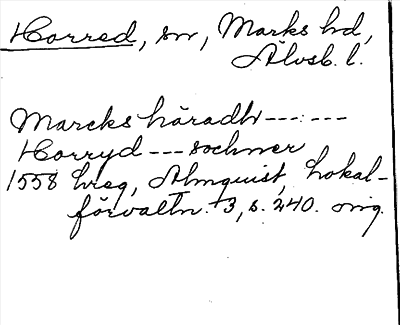 Horred, sn, Marks hd,
Älvsb. l.
Marcks häradh --- ---
Horryd --- sochner
1558 hreg, Almquist, Lokal-
förvaltn. 3, s. 240. orig.